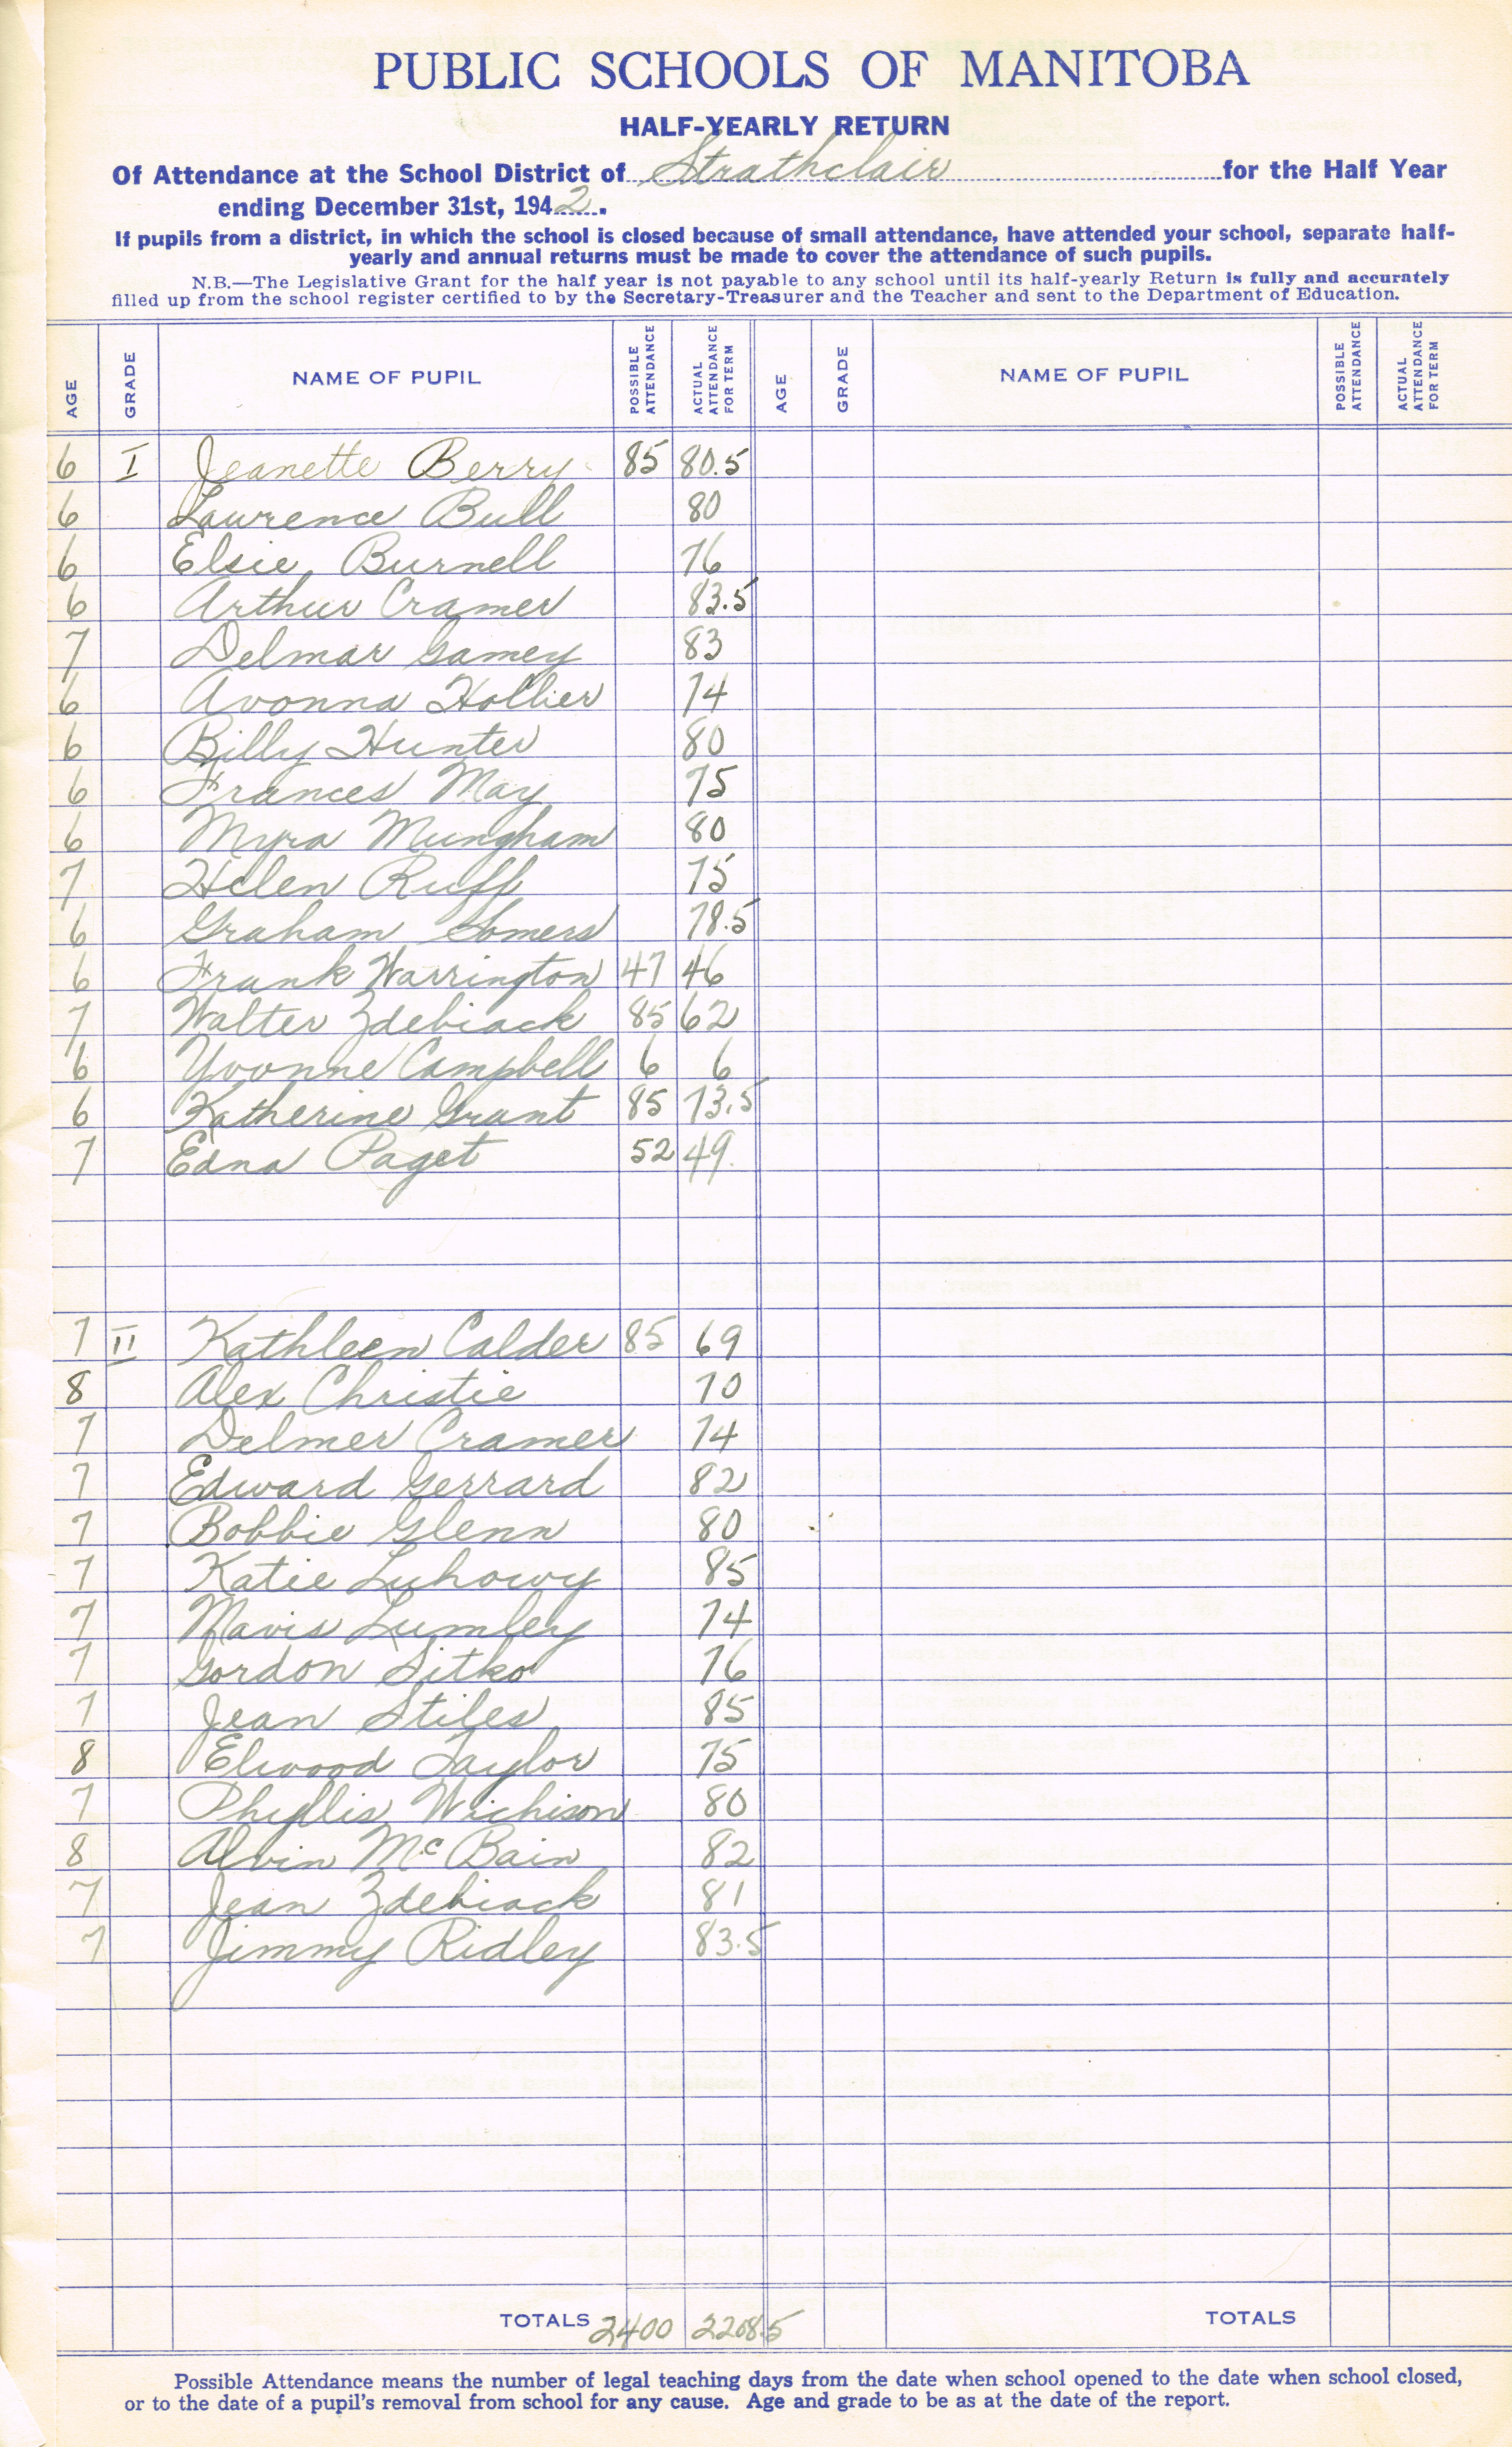 PUBLIC SCHOOLS OF MANITOBA
HALF-YEARLY RETURN
Of Attendance at the School District of Strathclair for the Half Year
ending December 31st, 1942.
If pupils from a district, in which the school is closed because of small attendance, have attended your school, separate half-
yearly and annual returns must be made to cover the attendance of such pupils.
N.B.—The Legislative Grant for the half year is not payable to any school until its half-yearly Return is fully and accurately
filled up from the school register certified to by the Secretary-Treasurer and the Teacher and sent to the Department of Education.
AGE GRADE NAME OF PUPIL POSSIBLE ATTENDANCE ACTUAL ATTENDANCE FOR TERM AGE GRADE NAME OF PUPIL POSSIBLE ATTENDANCE ACTUAL ATTENDANCE FOR TERM
6 I Jeanette Berry 85 80.5
6 Lawrence Bull 80
6 Elsie Burnell 76
6 Arthur Cramer 83.5
7 Delmar Gamey 83
6 Avonna Hollier 74
6 Billy Hunter 80
6 Frances May 75
6 Myra Mungham 80
7 Helen Ruff 75
6 Graham Somers 78.5
6 Frank Warrington 47 46
7 Walter Zdebiack 85 62
6 Yvonne Campbell 6 6
6 Katherine Grant 85 73.5
7 Edna Paget 52 49
7 II Kathleen Calder 85 69
8 Alex Christie 70
7 Delmer Cramer 74
7 Edward Gerrard 82
7 Bobbie Glenn 80
7 Katie Luhowy 85
7 Mavis Lumley 74
7 Gordon Sitko 76
7 Jean Stiles 85
8 Elwood Taylor 75
7 Phyllis Wichison 80
8 Alvin McBain 82
7 Jean Zdebiack 81
7 Jimmy Ridley 83.5
TOTALS 2400 2208.5 TOTALS
Possible Attendance means the number of legal teaching days from the date when school opened to the date when school closed,
or to the date of a pupil's removal from school for any cause. Age and grade to be as at the date of the report.